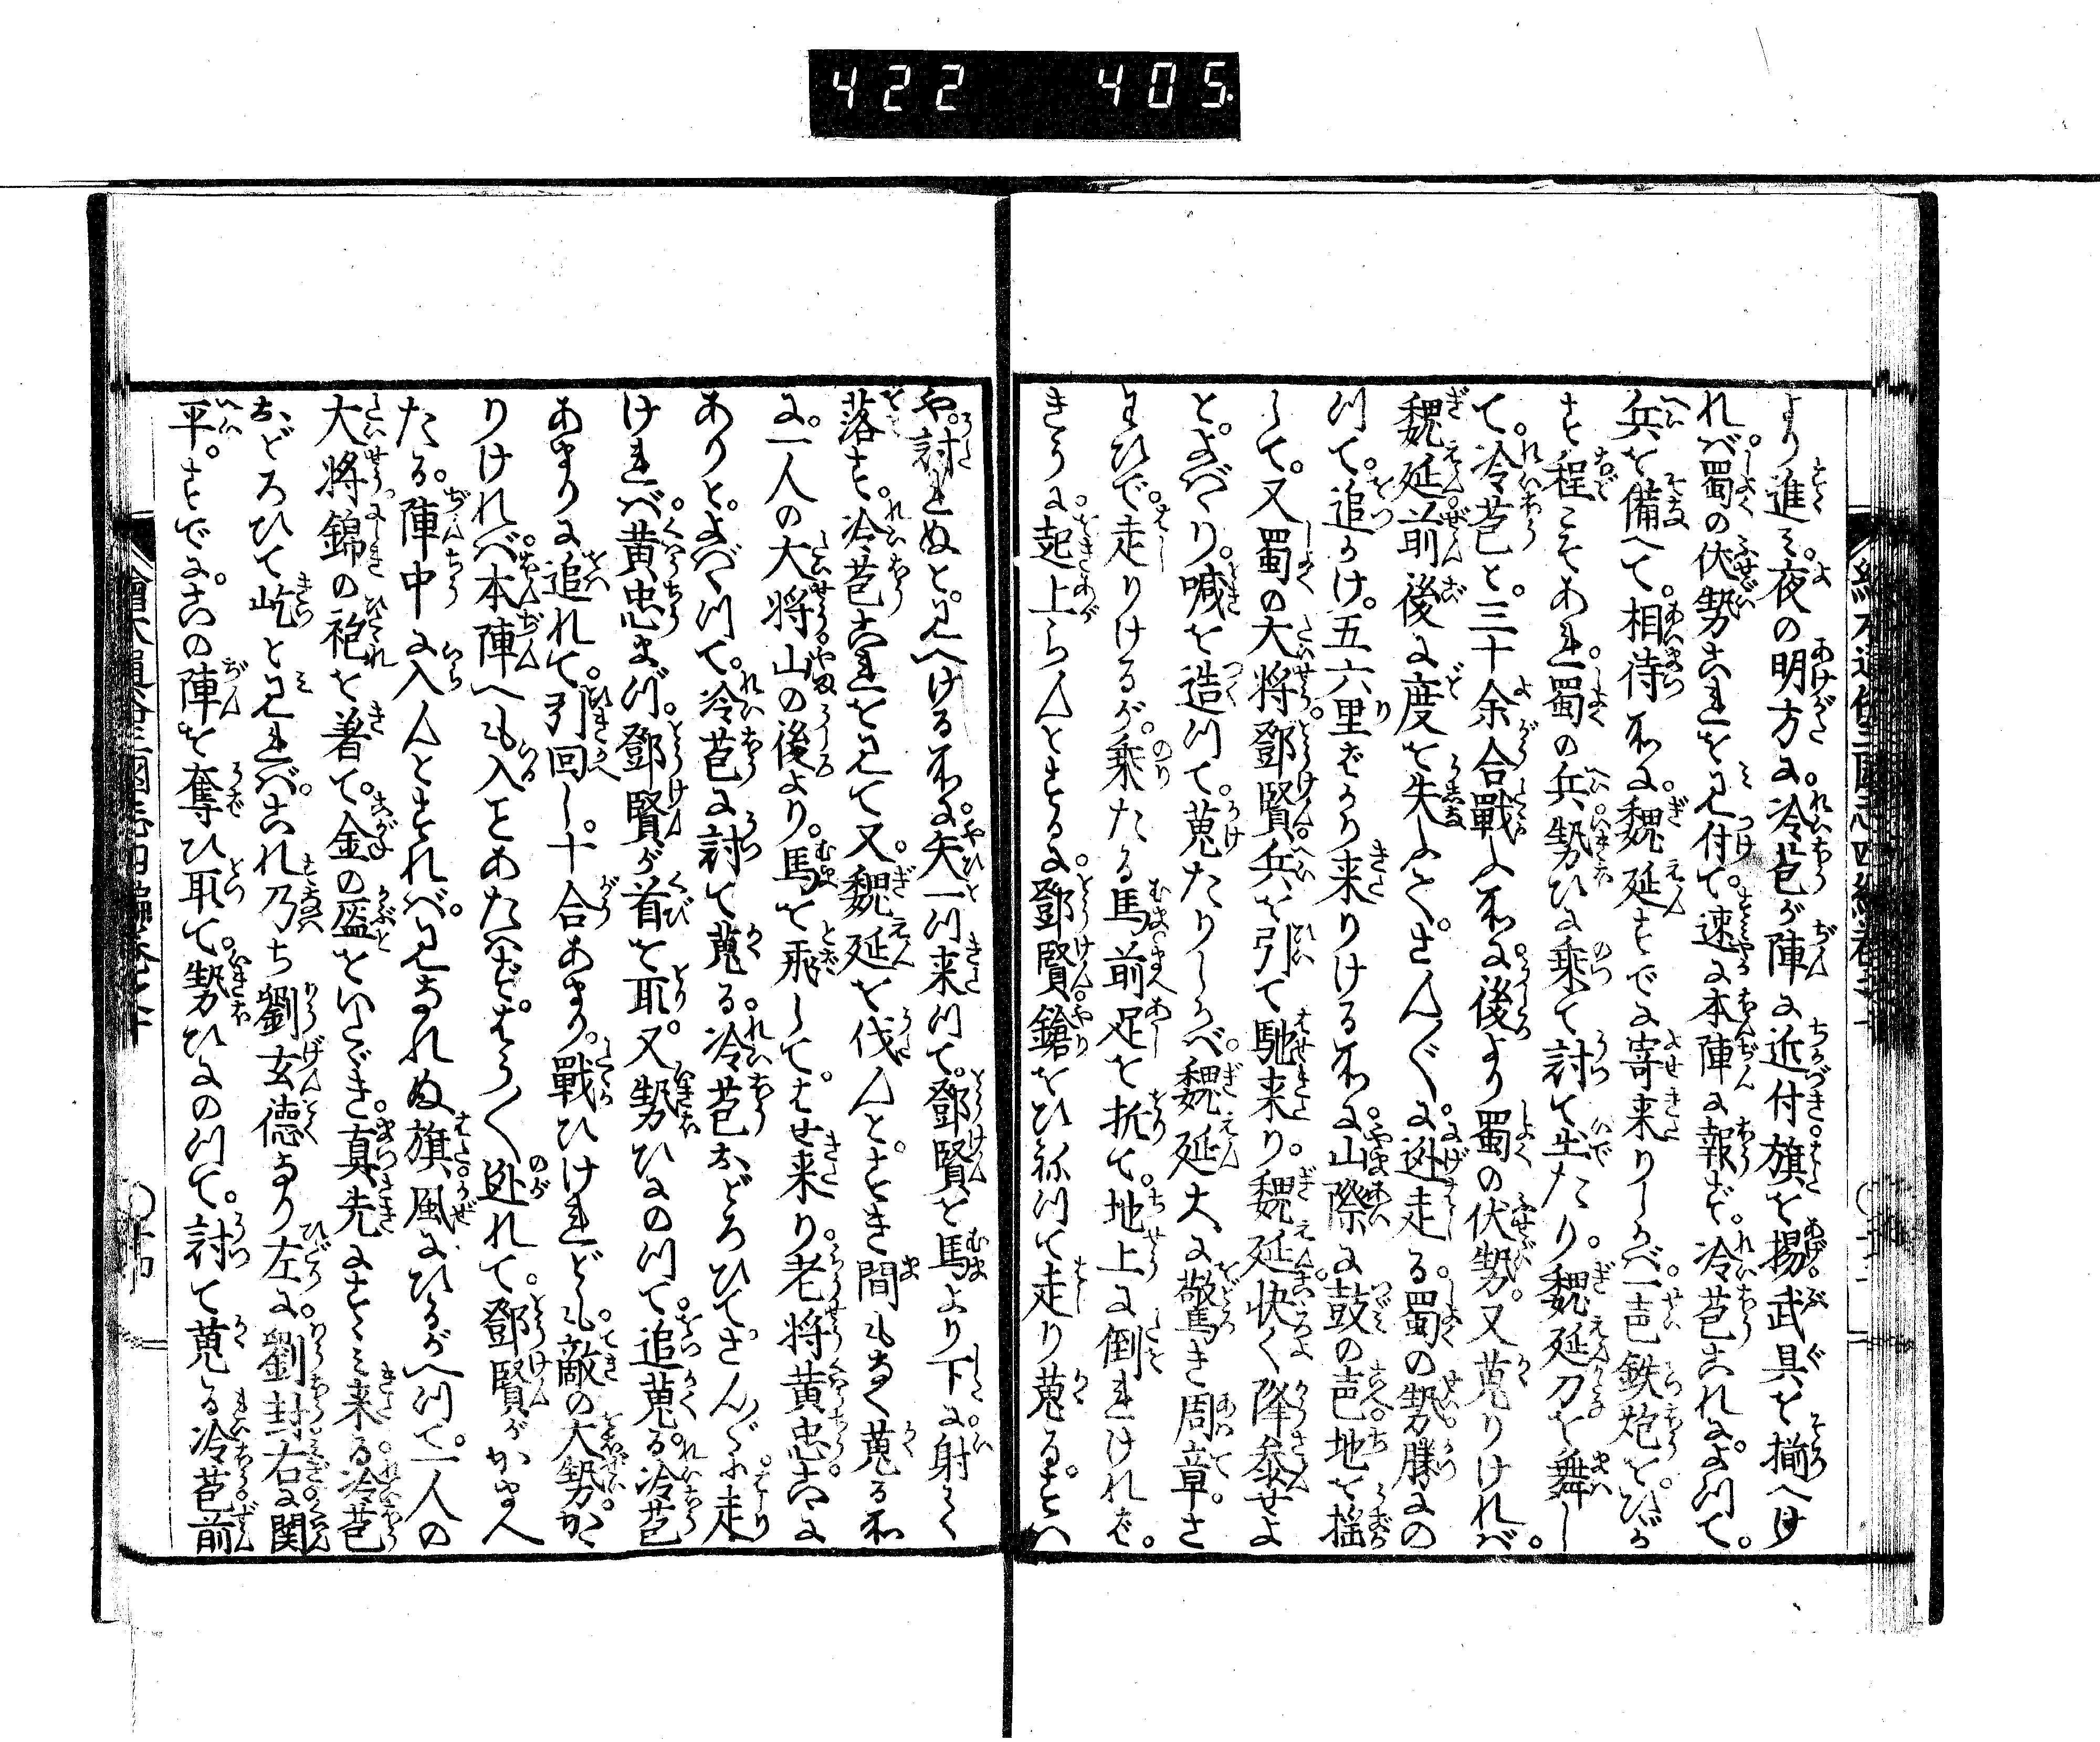 422 405
より進み。夜の明方に。冷苞が陣に近付。旗を揚。武具を揃へけ
れバ。蜀の伏勢これを見付て。速に本陣に報ず。冷苞これによつて。
兵を備へて。相待所に。魏延すでに寄来りしかバ。一声鉄炮をひゞか
す。程こそあれ。蜀の兵。勢ひに乗て討て出たり。魏延刀を舞し
て。冷苞と。三十余合戰ふ所に。後より蜀の伏勢。又蒐りけれバ。
魏延。前後に度を失ふて。さん〴〵に。迯走る。蜀の勢。勝にの
つて。追かけ。五六里ばかり来りける所に。山際に鼓の声。地を揺
して。又蜀の大将。鄧賢。兵を引て馳来り。魏延。快く降参せよ
と。よばゝり。喊を造つて。蒐たりしかバ。魏延大に驚き周章。さ
まひで。走りけるが。乗たる馬。前足を折て。地上に倒れけれバ。
きうに。起上らんとする。に。鄧賢。鎗をひねつて走り蒐る。すハ
や。討れぬと。見へける所に。矢一つ来つて。鄧賢を馬より下に。射て
落す。冷苞これを見て又。魏延を伐んと。するとき間もなく蒐る所
に。一人の大将。山の後より。馬を飛して。はせ来り。老将黄忠。これに
ありと。よばゝつて。冷苞に討て蒐る。冷苞おどろひて。さん〴〵に走
けれバ。黄忠まづ。鄧賢が首を取。又勢ひにのつて。追蒐る。冷苞
あまりに追れて。引回し。十合あまり。戰ひけれども。敵の大勢。かゝ
りけれバ。本陣へも入ことあたハず。はう〳〵迯れて。鄧賢がかまへ
たる。陣中に入んとすれバ。見なれぬ旗。風にひるがへつて。一人の
大将。錦の袍を着て。金の盔をいたゞき。真先にすゝみ来る。冷苞
おどろひて屹と見れバ。これ乃ち劉玄徳なり。左に。劉封。右に。関
平。すでに。この陣を奪ひ取て。勢ひにのつて。討て蒐る。冷苞。前